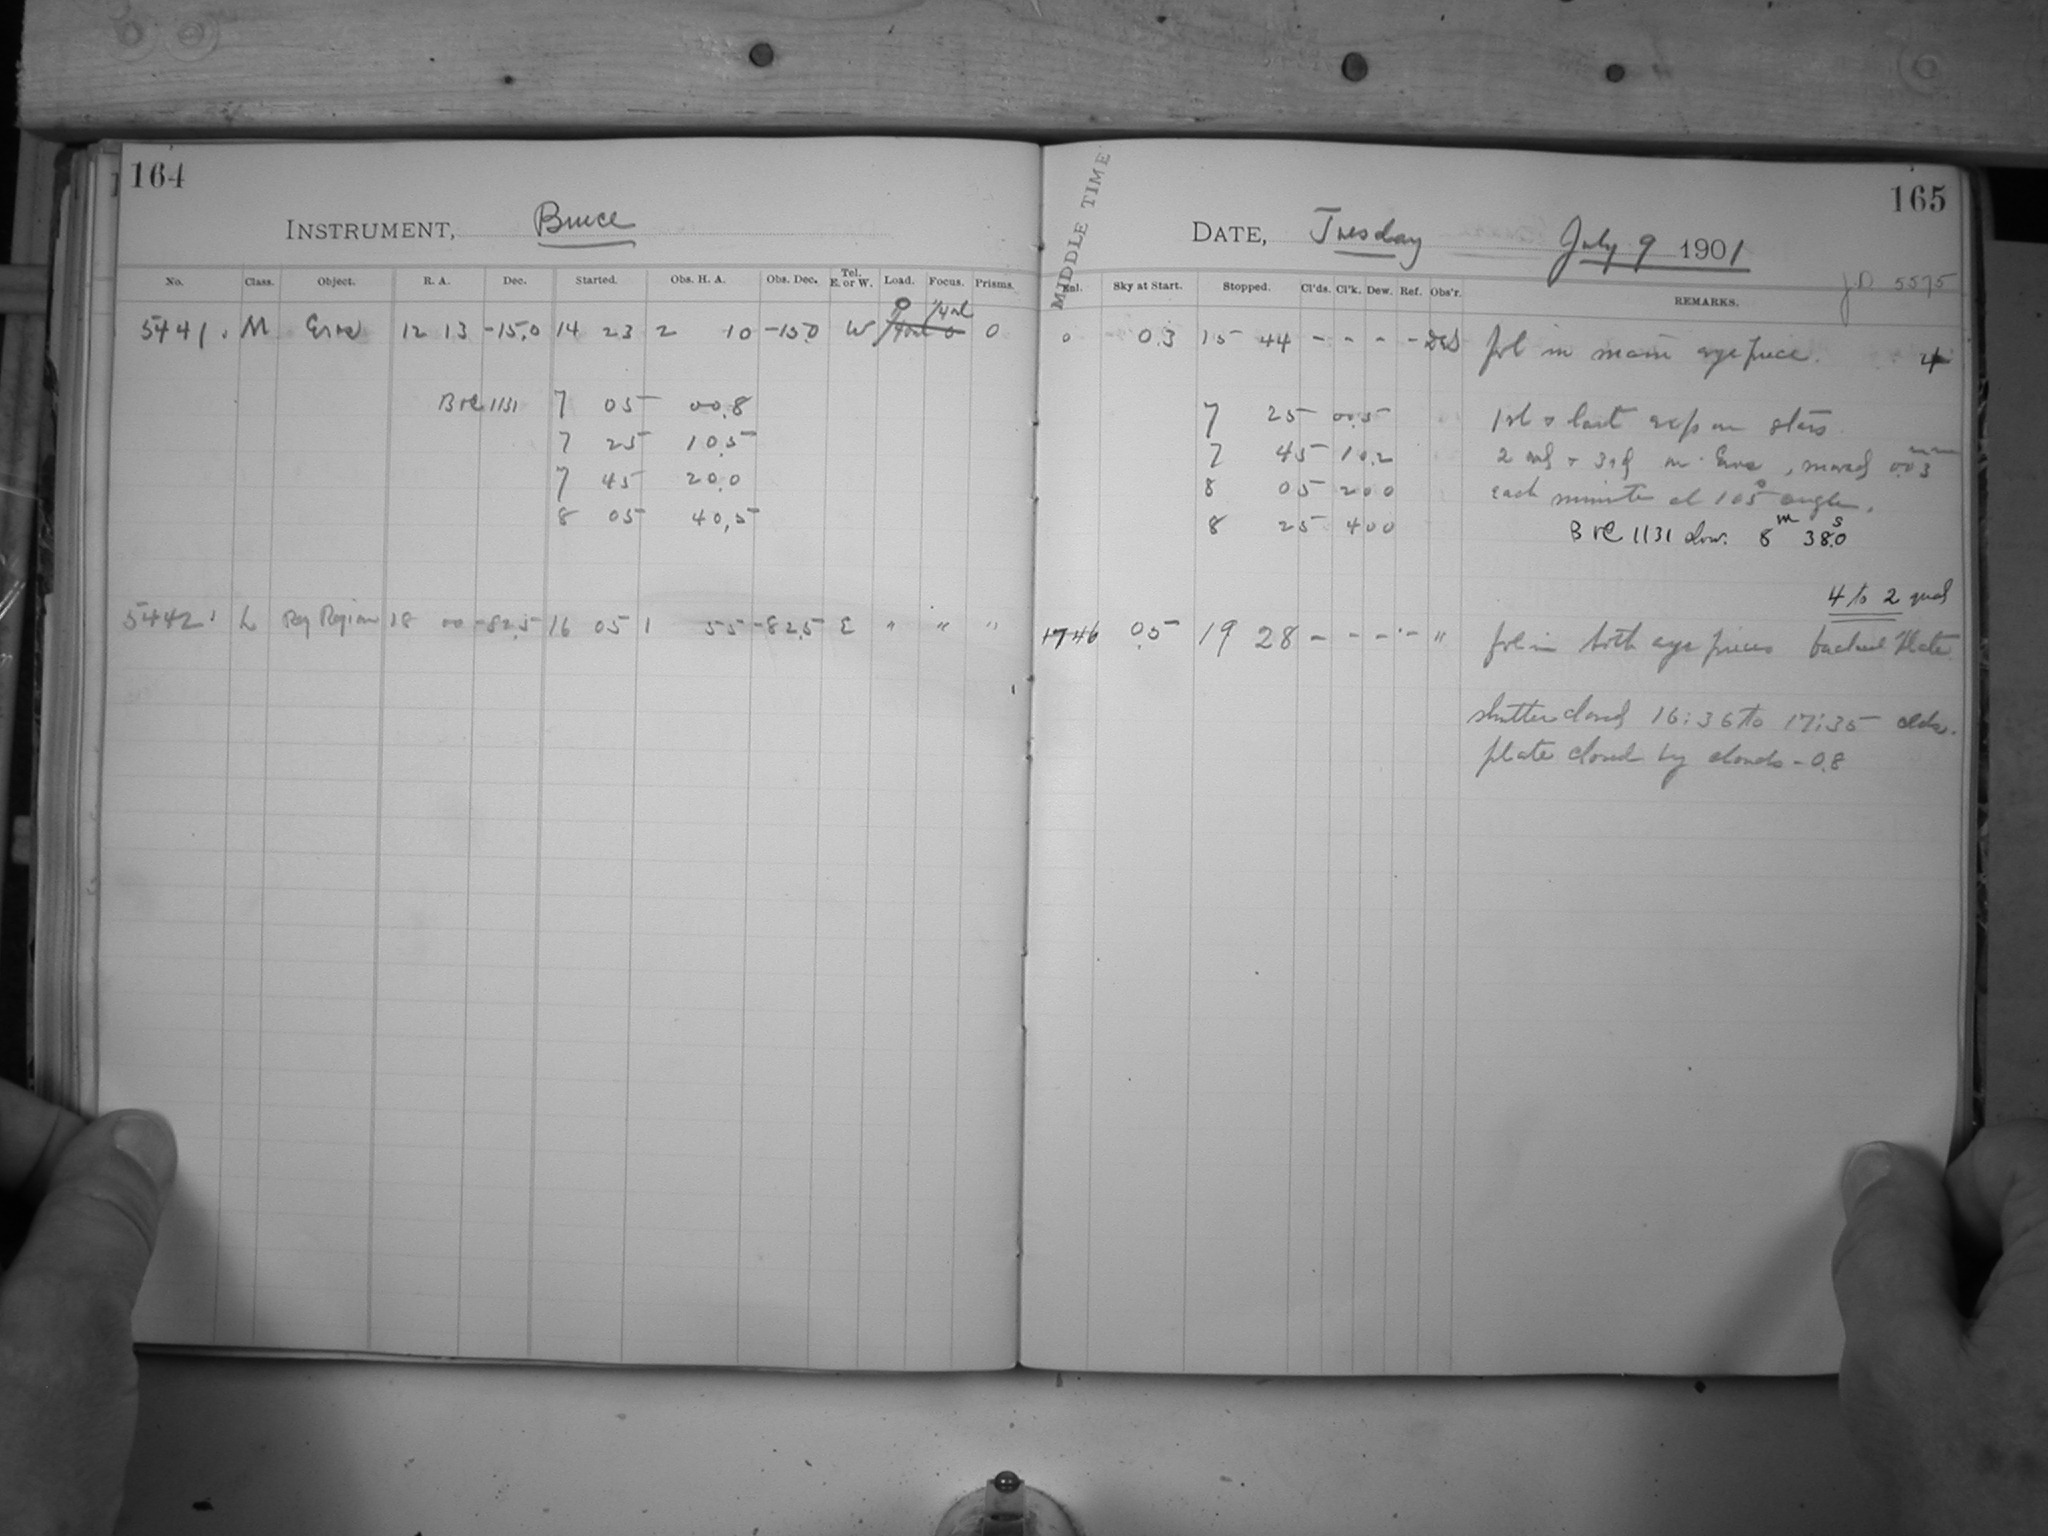 164
INSTRUMENT, Bruce
No. Class. Object. R. A. Dec. Started. Obs. H. A. Obs. Dec. Tel. E. or W. Load. Focus. Prisms.
0 1/4 ml
5441. M Eros 12 13 -15.0 14 23 2 10 -15.0 W 0 0
1131 7 05 00.8
7 25 10.5
7 45 20.0
8 05 40.5
5442 L Region 18 00 -82.5 16 05 1 55 -82.5 E " " "
165
MIDDLE TIME
DATE, Tuesday July 9 1901
J.D. 5575
Enl. Sky at Start. Stopped. Cl'ds. Cl'k. Dew. Ref. Obs'r. REMARKS.
0 0.3 15 44 - - - - in main eye piece. 4
7 25 00.5 1st & last exp on stars
7 45 10.2 2nd & 3rd on Eros, moved 0.03 mm
8 05 20.0 each minute at 105° angle.
8 25 40.0 1131 slow. 8m 38.0s
4 to 2 qual
1746 0.5 19 28 - - - - " in both eye pieces backed plate
shutter closed 16:36 to 17:35 clds.
plate closed by clouds - 0.8